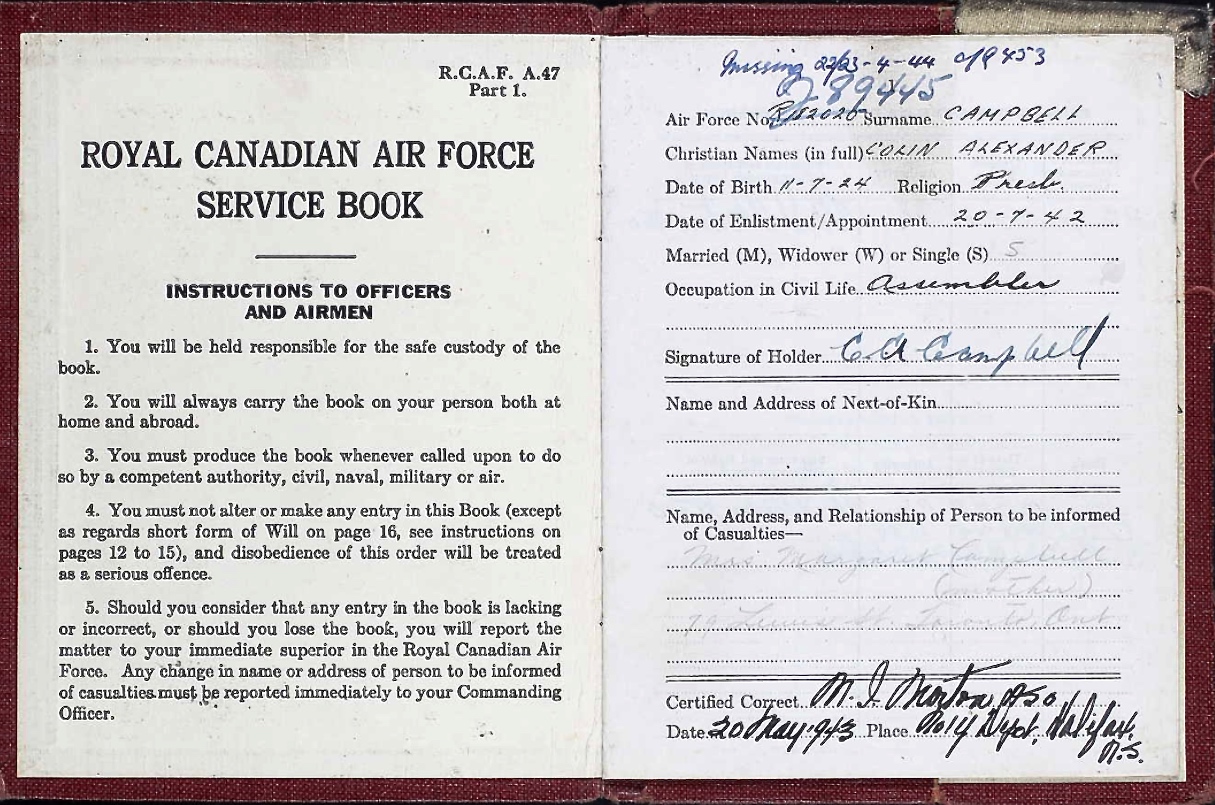 R.C.A.F. A.47
Part 1.
ROYAL CANADIAN AIR FORCE
SERVICE BOOK
INSTRUCTIONS TO OFFICERS
AND AIRMEN
1. You will be held responsible for the safe custody of the
book.
2. You will always carry the book on your person both at
home and abroad.
3. You must produce the book whenever called upon to do
so by a competent authority, civil, naval, military or air.
4. You must not alter or make any entry in this Book (except
as regards short form of Will on page 16, see instructions on
pages 12 to 15), and disobedience of this order will be treated
as a serious offence.
5. Should you consider that any entry in the book is lacking
or incorrect, or should you lose the book, you will report the
matter to your immediate superior in the Royal Canadian Air
Force. Any change in name or address of person to be informed
of casualties must be reported immediately to your Commanding
Officer.
Missing 22/23-4-44 9453
J89445
Air Force No. R182020 Surname CAMPBELL
Christian Names (in full) COLIN ALEXANDER
Date of Birth 11-7-24 Religion Presb.
Date of Enlistment/Appointment 20-7-42
Married (M), Widower (W) or Single (S) S
Occupation in Civil Life Assembler
Signature of Holder C A Campbell
Name and Address of Next-of-Kin
Name, Address, and Relationship of Person to be informed
of Casualties—
Mrs Margaret Campbell
(mother)
79 Lewis St. Toronto Ont
Certified Correct M. I. Norton ASO
Date 20 May 1943 Place No 1 Y Depot, Halifax,
N.S.